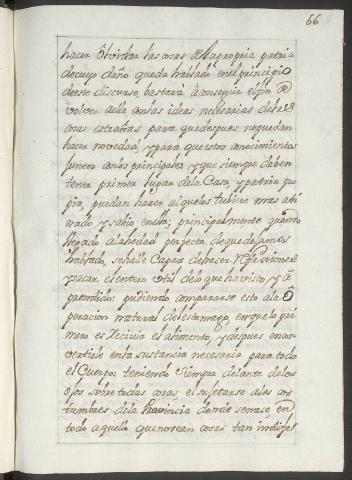 66
hacer olvidar las cosas de la propria patria
de cuyo daño queda hablado en el principio
de este discurso, bastará à conseguir el fin de
volver à ella con las ideas necesarias de las
cosas estrañas para que despues no puedan
hacer novedad, y para que estos conocimientos
juntos con los principales, y que siempre deben
tener primer lugar de la Casa, y patria pro
pia, puedan hacer al que los tubiere mas abi
sado, y sabio en ella; principalmente quando
llegado à la hedad perfecta de que dejamos
hablado, se halle Capaz de hacer reflexiones
y sacar el entero util de lo que ha visto, y à
prendido: pudiendo compararse esto a la o
peracion natural del estomago, en que lo pri
mero es recivir el alimento, y despues con
vertirle en la sustancia necesaria para todo
el Cuerpo; teniendo siempre delante de los
ojos sobre todas cosas, el sujetarse a las cos
tumbres de la Provincia donde se nace en
todo aquello que no sean cosas tan